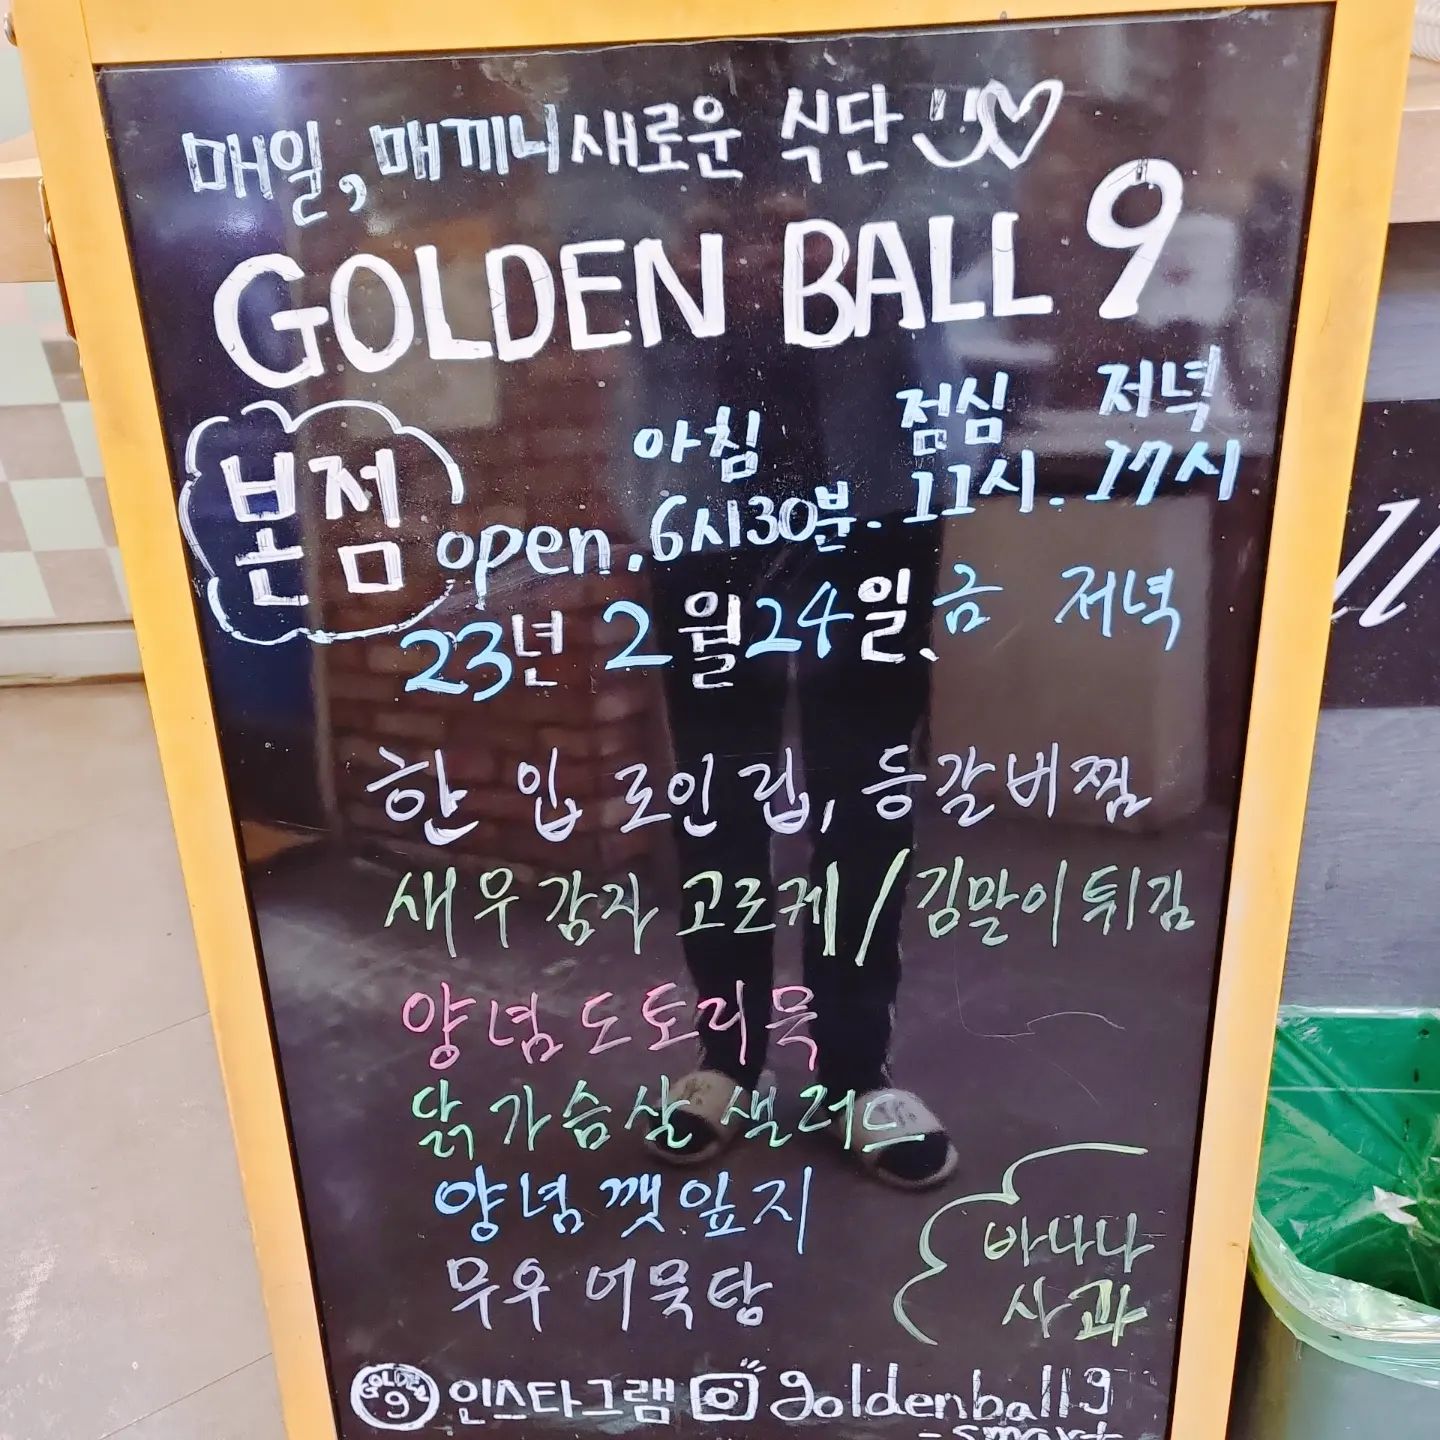 매일, 매끼니 새로운 식단
GOLDEN BALL 9
본점
아침 점심 저녁
open. 6시30분. 11시. 17시
23년 2월 24일. 금 저녁
한 입 로인 립, 등갈비찜
새우 감자 고로케 / 김말이 튀김
양념 도토리묵
닭 가슴살 샐러드
양념 깻잎지
무우 어묵탕
바나나
사과
GOLDEN 9 인스타그램 goldenball9
-smart